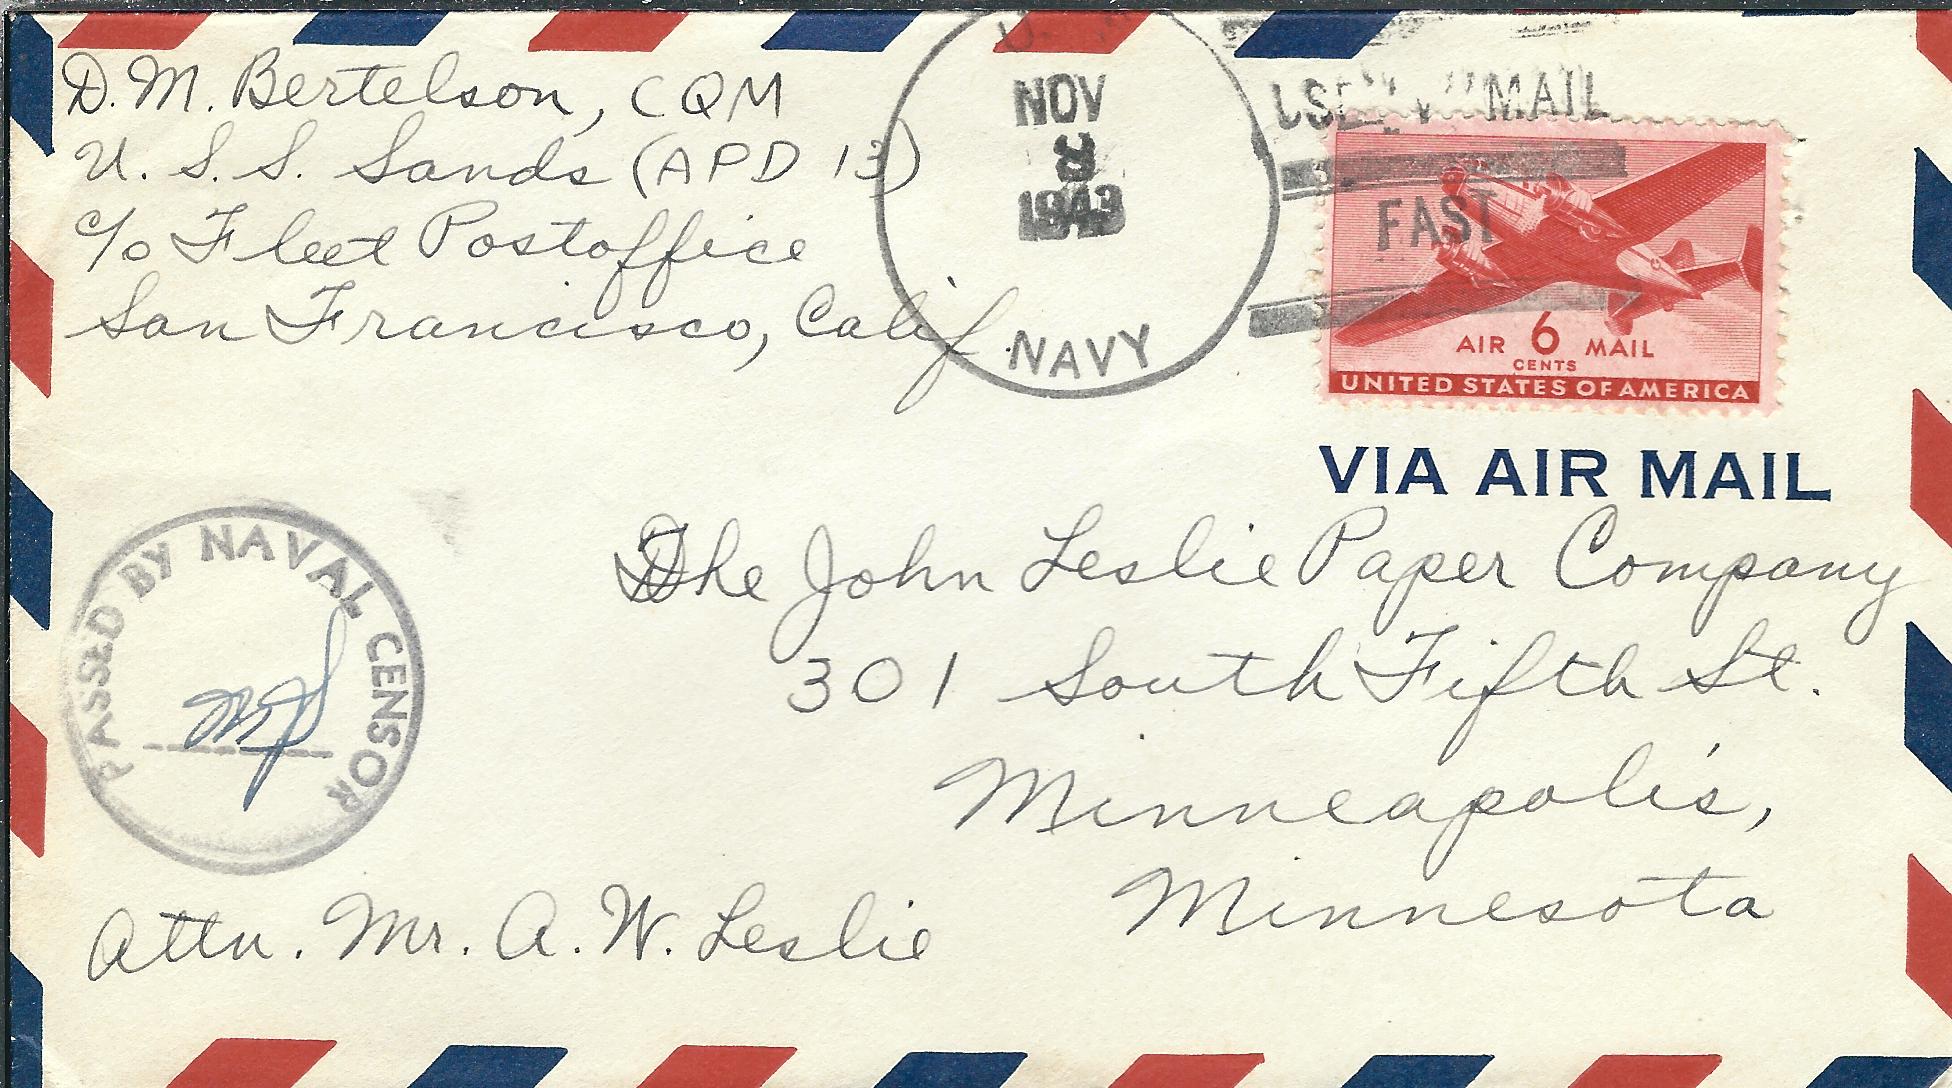 D. M. Bertelson, CQM
U. S. S. Sands (APD 13)
c/o Fleet Postoffice
San Francisco, Calif.
U.
NOV
1943
NAVY
USE V MAIL
FAST
AIR 6 MAIL
CENTS
UNITED STATES OF AMERICA
VIA AIR MAIL
PASSED BY NAVAL CENSOR
The John Leslie Paper Company
301 South Fifth St.
Minneapolis,
Minnesota
Attn. Mr. A. W. Leslie